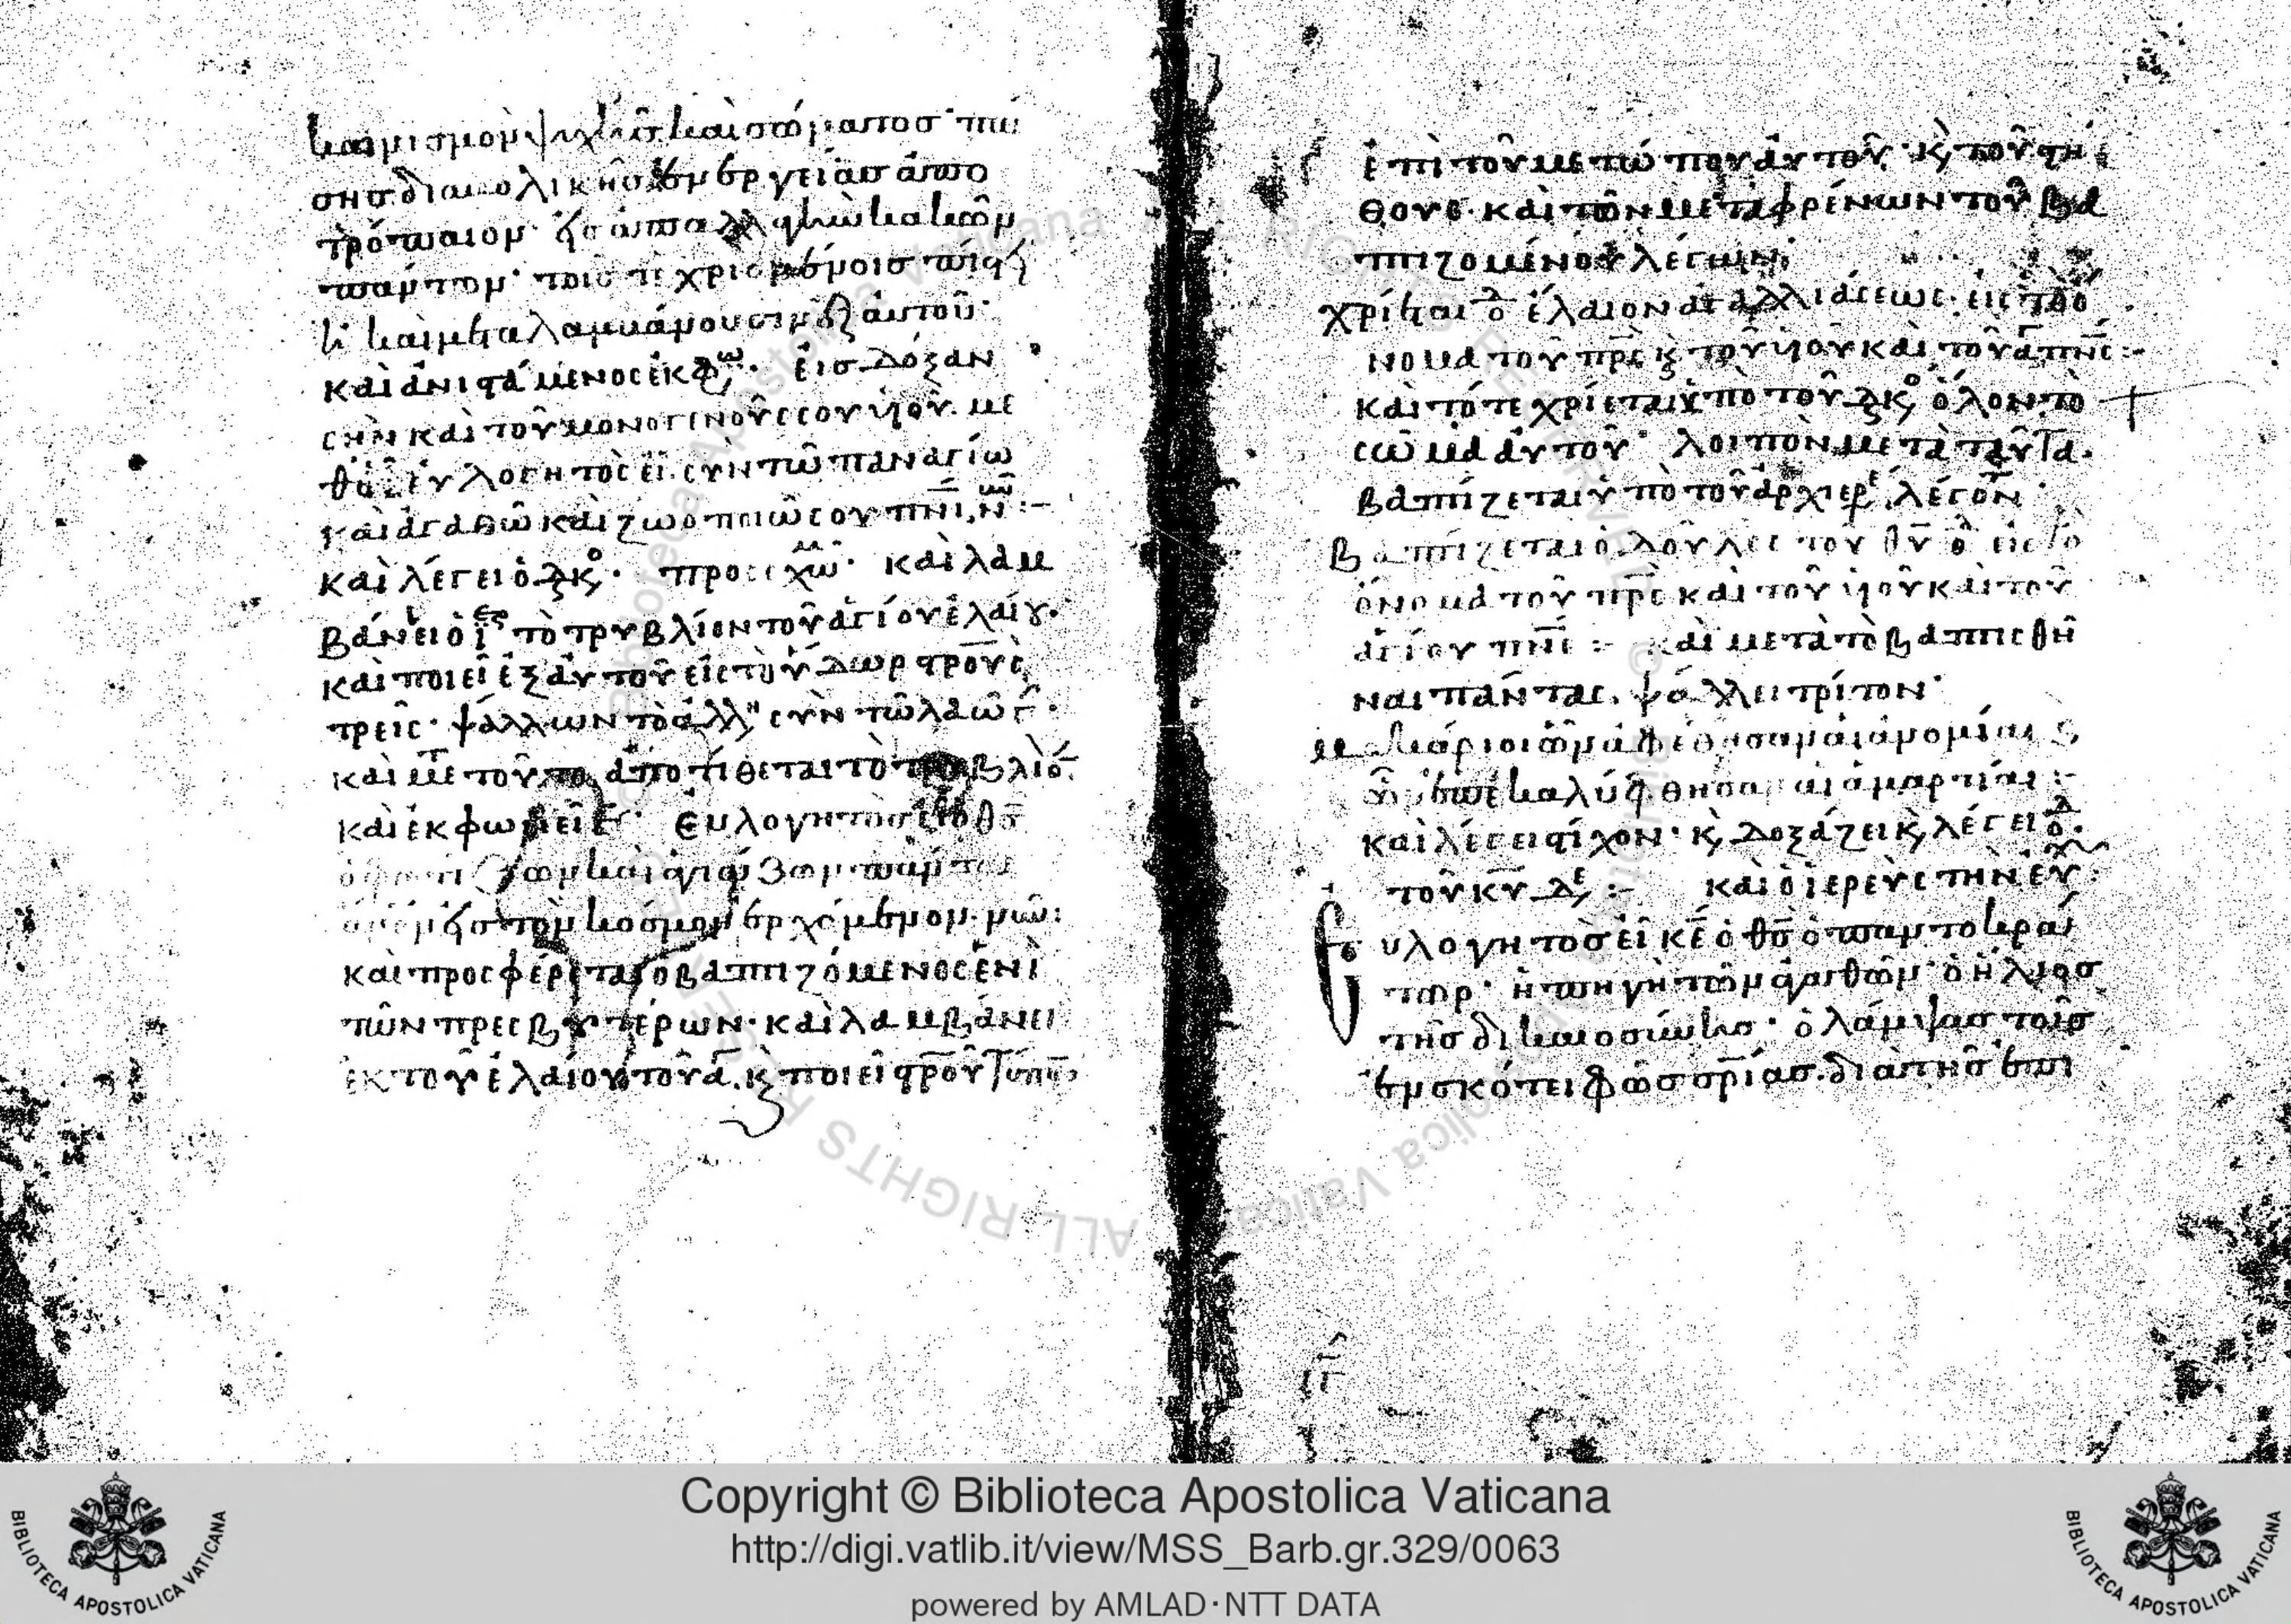 καινισμὸν ψυχῆς καὶ σώματος· πά
σης διαβολικῆς ἐνεργείας ἀπο
τρόπαιον· εἰς ἀπαλλαγὴν κακῶν
πάντων· τοῖς τε χριομένοις πίστ
ἢ καὶ μεταλαμβάνουσιν ἐξ αὐτοῦ·
καὶ ἀνιστάμενος ἐκφω· εἰς δόξαν
σὴν καὶ τοῦ μονογενοῦς σου υἱοῦ· με
θ' οὗ εὐλογητὸς εἶ· σὺν τῶ παναγίω
καὶ ἀγαθῶ καὶ ζωοποιῶ σου πνι, νῦν :-
καὶ λέγει ὁ διακο· προσχω· καὶ λαμ
βάνει ὁ ιες τὸ τρυβλίον τοῦ ἁγίου ἐλαίου·
καὶ ποιεῖ ἐξ αὐτοῦ εἰς τὸ ὕδωρ στρους
τρεῖς· ψάλλων τὸ ἀλλ συν τῶ λαῶ γ·
καὶ με τοῦτο ἀποτίθεται τὸ τρυβλίο.
καὶ ἐκφωνεῖ· Εὐλογητὸς εἶ ὁ θς
ὁ φωτίζων καὶ ἁγιάζων πάντα
ἀνον εἰς τὸν κόσμον ἐρχόμενον· νῦν:
καὶ προσφέρεται ὁ βαπτιζόμενος ἑνὶ
τῶν πρεσβυτέρων· καὶ λαμβάνει
ἐκ τοῦ ἐλαίου τοῦ ἁ, κ ποιεῖ στρου τύπο
ἐπὶ τοῦ μετώπου αὐτοῦ· κ τοῦ στή
θους· καὶ τῶν μεταφρένων τοῦ βα
πτιζομένου λέγων·
χρίεται ὁ δ ἔλαιον ἀγαλλιάσεως· εἰς τὸ ὄ
νομα τοῦ πρς κ τοῦ υἱοῦ καὶ τοῦ ἁ πνς:-
καὶ τότε χρίεται ὑπὸ τοῦ διακο ὅλον τὸ
σῶμα αὐτοῦ· λοιπὸν μετὰ ταῦτα·
βαπτίζεται ὑπὸ τοῦ ἀρχιερε, λέγον·
Βαπτίζεται ὁ δοῦλος τοῦ θυ ὁ δ εἰς τὸ
ὄνομα τοῦ πρς καὶ τοῦ υἱοῦ καὶ τοῦ
ἁγίου πνς :- καὶ μετὰ τὸ βαπτισθῆ
ναι πάντας, ψάλλει τρίτον·
Μακάριοι ὧν ἀφέθησαν αἱ ἀνομίαι κ
ὧν ἐπεκαλύφθησαν αἱ ἁμαρτίαι :-
καὶ λέγει στίχον· κ δοξάζει κ λέγει ὁ δ.
τοῦ κυ δε :- καὶ ὁ ἱερεὺς τὴν εὐχ:
Εὐλογητὸς εἶ κε ὁ θς ὁ παντοκρά
τωρ· ἡ πηγὴ τῶν ἀγαθῶν· ὁ ἥλιος
τῆς δικαιοσύνης· ὁ λάμψας τοῖς
ἐν σκότει φῶς σρίας· διὰ τῆς ἐπι
Copyright © Biblioteca Apostolica Vaticana
http://digi.vatlib.it/view/MSS_Barb.gr.329/0063
powered by AMLAD·NTT DATA
BIBLIOTECA APOSTOLICA VATICANA
BIBLIOTECA APOSTOLICA VATICANA